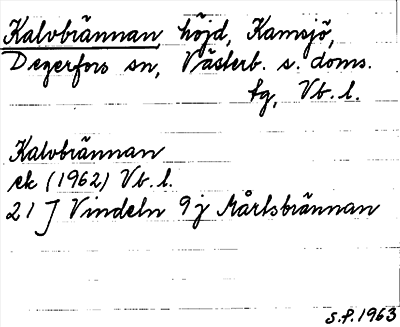 Kalvbrännan, höjd, Kamsjö,
Degerfors sn, Västerb. s. doms.
tg, Vb. l.
Kalvbrännan
ek (1962) Vb. l.
21 J Vindeln 9 j Mårtsbrännan
S.P. 1963